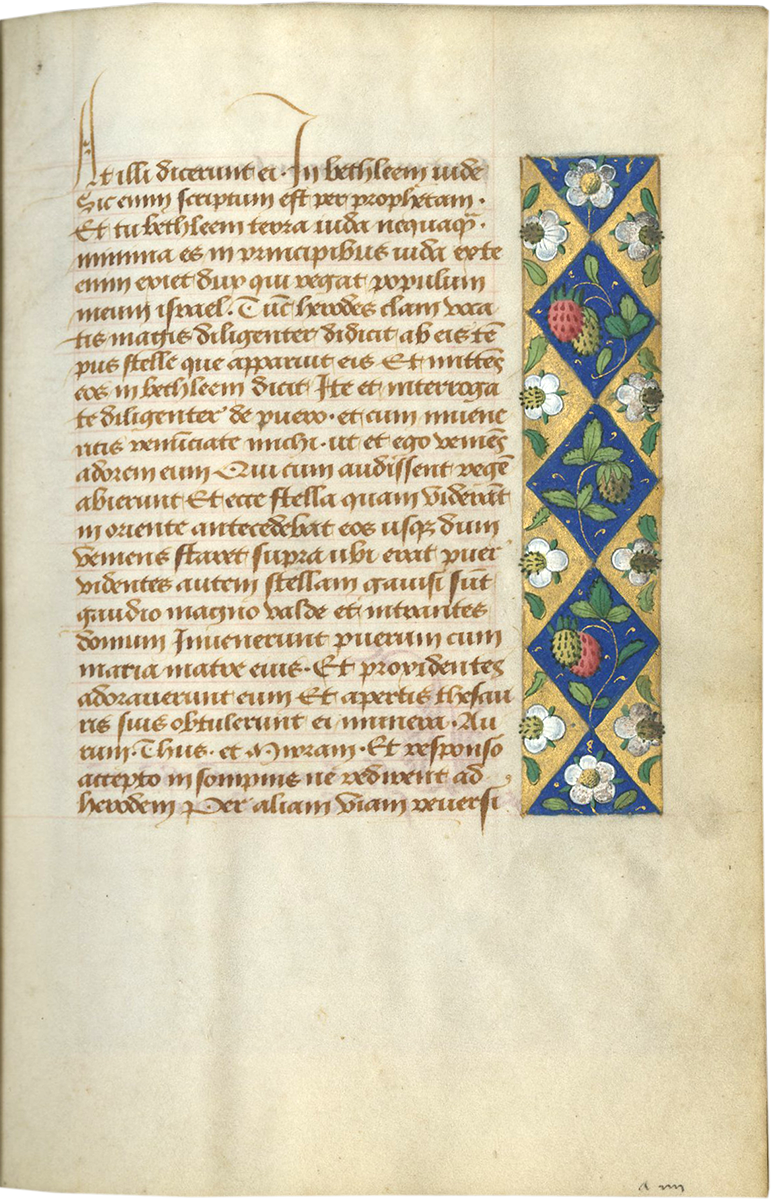 At illi dicerunt ei · In bethleem iude
Sic enim scriptum est per prophetam ·
Et tu bethleem terra iuda nequaq̃ ·
minima es in principibus iuda exte
enim exiet dux qui regat populum
meum israel · Tūc herodes clam voca
tis magis diligenter didicit ab eis tē
pus stelle que apparuit eis Et mittēs
eos in bethleem dicit Ite et interroga
te diligenter de puero · et cum invene
ritis renūciate michi · ut et ego veniēs
adorem eum Qui cum audissent regē
abierunt Et ecce stella quam viderāt
in oriente antecedebat eos usqꝫ dum
veniens staret supra ubi erat puer
videntes autem stellam gavisi sūt
gaudio magno valde et intrantes
domum Invenerunt puerum cum
maria matre eius · Et providentes
adoraverunt eum Et apertis thesau
ris suis obtulerunt ei munera · Au
rum · Thus · et Mirram · Et responso
accepto in sompnis ne redirent ad
herodem Per aliam viam reversi
a iiii